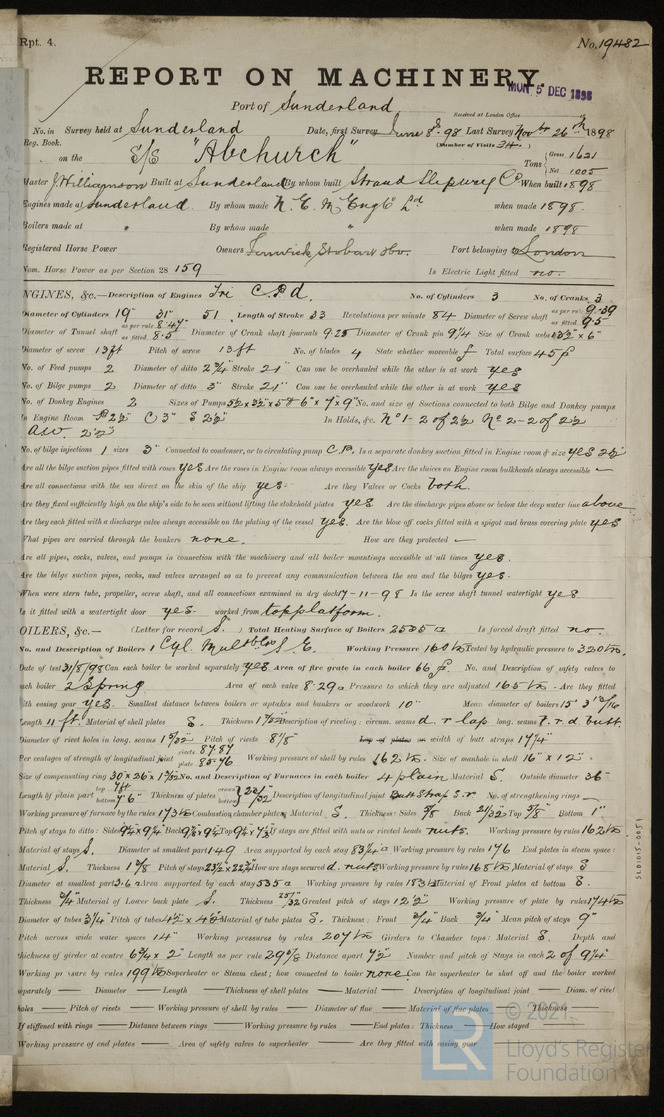 Rpt. 4.
No. 19482
REPORT ON MACHINERY.
MON 5 DEC 1898
Port of Sunderland
Received at London Office
No. in Survey held at Sunderland Date, first Survey June 8th 98 Last Survey Novr 26th 1898
Reg. Book. (Number of Visits 34.)
on the S/S "Abchurch" Tons Gross 1621 Net 1005
Master J. Williamson Built at Sunderland By whom built Strand Slipway Co When built 1898
Engines made at Sunderland By whom made N. E. M. Engg Co Ld when made 1898.
Boilers made at " By whom made " when made 1898
Registered Horse Power Owners Fenwick Stobart & Co. Port belonging to London
Nom. Horse Power as per Section 28 159 Is Electric Light fitted no.
NGINES, &c.—Description of Engines Tri C.P.d. No. of Cylinders 3 No. of Cranks 3
Diameter of Cylinders 19" 31" 51 Length of Stroke 33 Revolutions per minute 84 Diameter of Screw shaft as per rule 9.39 as fitted 9.5
Diameter of Tunnel shaft as per rule 8.47 as fitted 8.5 Diameter of Crank shaft journals 9.25 Diameter of Crank pin 9 1/4 Size of Crank webs × 6"
Diameter of screw 13ft Pitch of screw 13ft No. of blades 4 State whether moveable Total surface 45
No. of Feed pumps 2 Diameter of ditto 2 3/4" Stroke 21" Can one be overhauled while the other is at work yes
No. of Bilge pumps 2 Diameter of ditto 3" Stroke 21" Can one be overhauled while the other is at work yes
No. of Donkey Engines 2 Sizes of Pumps 5 1/2 × 3 1/2 × 5" & 6" × 7 × 9" No. and size of Suctions connected to both Bilge and Donkey pumps
In Engine Room P 2 1/2" C 3" S 2 1/2" In Holds, &c. No 1 - 2 of 2 1/2 No 2 - 2 of 2 1/2
2 1/2"
No. of bilge injections 1 sizes 3" Connected to condenser, or to circulating pump C.P. Is a separate donkey suction fitted in Engine room & size yes 2 1/2
Are all the bilge suction pipes fitted with roses yes Are the roses in Engine room always accessible yes Are the sluices on Engine room bulkheads always accessible —
Are all connections with the sea direct on the skin of the ship yes. Are they Valves or Cocks both.
Are they fixed sufficiently high on the ship's side to be seen without lifting the stokehold plates yes Are the discharge pipes above or below the deep water line above
Are they each fitted with a discharge valve always accessible on the plating of the vessel yes. Are the blow off cocks fitted with a spigot and brass covering plate yes
What pipes are carried through the bunkers none. How are they protected —
Are all pipes, cocks, valves, and pumps in connection with the machinery and all boiler mountings accessible at all times yes.
Are the bilge suction pipes, cocks, and valves arranged so as to prevent any communication between the sea and the bilges yes.
When were stern tube, propeller, screw shaft, and all connections examined in dry dock 17-11-98 Is the screw shaft tunnel watertight yes
Is it fitted with a watertight door yes worked from top platform.
OILERS, &c.— (Letter for record S.) Total Heating Surface of Boilers 2535 Is forced draft fitted no.
No. and Description of Boilers 1 Cyl. Multblar S. E. Working Pressure 160 lbs Tested by hydraulic pressure to 320 lbs.
Date of test 31/8/98 Can each boiler be worked separately yes Area of fire grate in each boiler 66 No. and Description of safety valves to
each boiler 2 Spring Area of each valve 8.29 Pressure to which they are adjusted 165 lbs. Are they fitted
with easing gear yes. Smallest distance between boilers or uptakes and bunkers or woodwork 10" Mean diameter of boilers 15' 3
Length 11 ft. Material of shell plates S. Thickness 1 Description of riveting: circum. seams d. r lap long. seams t. r. d. butt.
Diameter of rivet holes in long. seams 1 Pitch of rivets 8 1/8" Lap of plates or width of butt straps 17 1/4"
Per centages of strength of longitudinal joint rivets 87.87 plate 85.76 Working pressure of shell by rules 162 lbs. Size of manhole in shell 16" × 12".
Size of compensating ring 30 × 26 × 1 No. and Description of Furnaces in each boiler 4 plain Material S. Outside diameter 36"
Length of plain part top 7ft bottom 7'6" Thickness of plates crown bottom Description of longitudinal joint Butt Strap S.r No. of strengthening rings —
Working pressure of furnace by the rules 173 lbs Combustion chamber plates, Material S. Thickness: Sides 5/8 Back 21/32 Top 5/8" Bottom 1"
Pitch of stays to ditto: Sides Back Top If stays are fitted with nuts or riveted heads nuts. Working pressure by rules 162 lbs
Material of stays S. Diameter at smallest part 1.49 Area supported by each stay 83 1/4 Working pressure by rules 176 End plates in steam space:
Material S. Thickness 1 Pitch of stays How are stays secured d. nuts Working pressure by rules 168 lbs Material of stays S
Diameter at smallest part 3.6 Area supported by each stay 535 Working pressure by rules 183 lbs Material of Front plates at bottom S.
Thickness 3/4" Material of Lower back plate S. Thickness 25/32 Greatest pitch of stays 12 1/2" Working pressure of plate by rules 174 lbs
Diameter of tubes 3 1/4" Pitch of tubes Material of tube plates S. Thickness: Front 3/4" Back 3/4" Mean pitch of stays 9"
Pitch across wide water spaces 14" Working pressures by rules 207 lbs Girders to Chamber tops: Material S. Depth and
thickness of girder at centre 6 3/4 × 2" Length as per rule Distance apart 7 1/2" Number and pitch of Stays in each 2 of 9 1/4"
Working pressure by rules 199 lbs Superheater or Steam chest; how connected to boiler none Can the superheater be shut off and the boiler worked
separately — Diameter — Length — Thickness of shell plates — Material — Description of longitudinal joint — Diam. of rivet
holes — Pitch of rivets — Working pressure of shell by rules — Diameter of flue — Material of flue plates — Thickness —
If stiffened with rings — Distance between rings — Working pressure by rules — End plates: Thickness — How stayed —
Working pressure of end plates — Area of safety valves to superheater — Are they fitted with easing gear —
SLD1015-0051
LR
© 2021
Lloyd's Register
Foundation